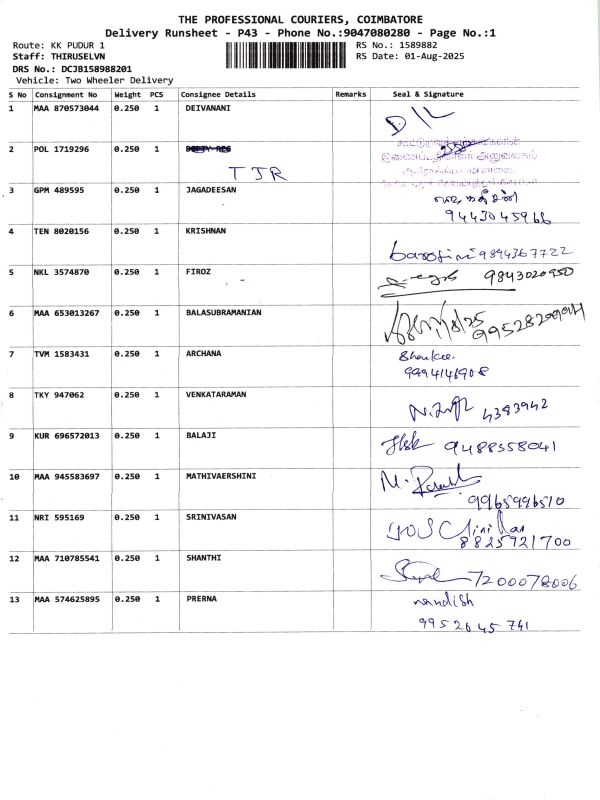 THE PROFESSIONAL COURIERS, COIMBATORE
Delivery Runsheet - P43 - Phone No.:9047080280 - Page No.:1
Route: KK PUDUR 1 RS No.: 1589882
Staff: THIRUSELVN RS Date: 01-Aug-2025
DRS No.: DCJB158988201
Vehicle: Two Wheeler Delivery
S No Consignment No Weight PCS Consignee Details Remarks Seal & Signature
1 MAA 870573044 0.250 1 DEIVANANI
2 POL 1719296 0.250 1
TJR
3 GPM 489595 0.250 1 JAGADEESAN
9443045966
4 TEN 8020156 0.250 1 KRISHNAN
9894367722
5 NKL 3574870 0.250 1 FIROZ 9843020950
6 MAA 653013267 0.250 1 BALASUBRAMANIAN
7 TVM 1583431 0.250 1 ARCHANA
9994146908
8 TKY 947062 0.250 1 VENKATARAMAN
4383942
9 KUR 696572013 0.250 1 BALAJI 9488558041
10 MAA 945583697 0.250 1 MATHIVAERSHINI
9965996510
11 NRI 595169 0.250 1 SRINIVASAN
8825921700
12 MAA 710785541 0.250 1 SHANTHI
7200078006
13 MAA 574625895 0.250 1 PRERNA nandish
9952645741